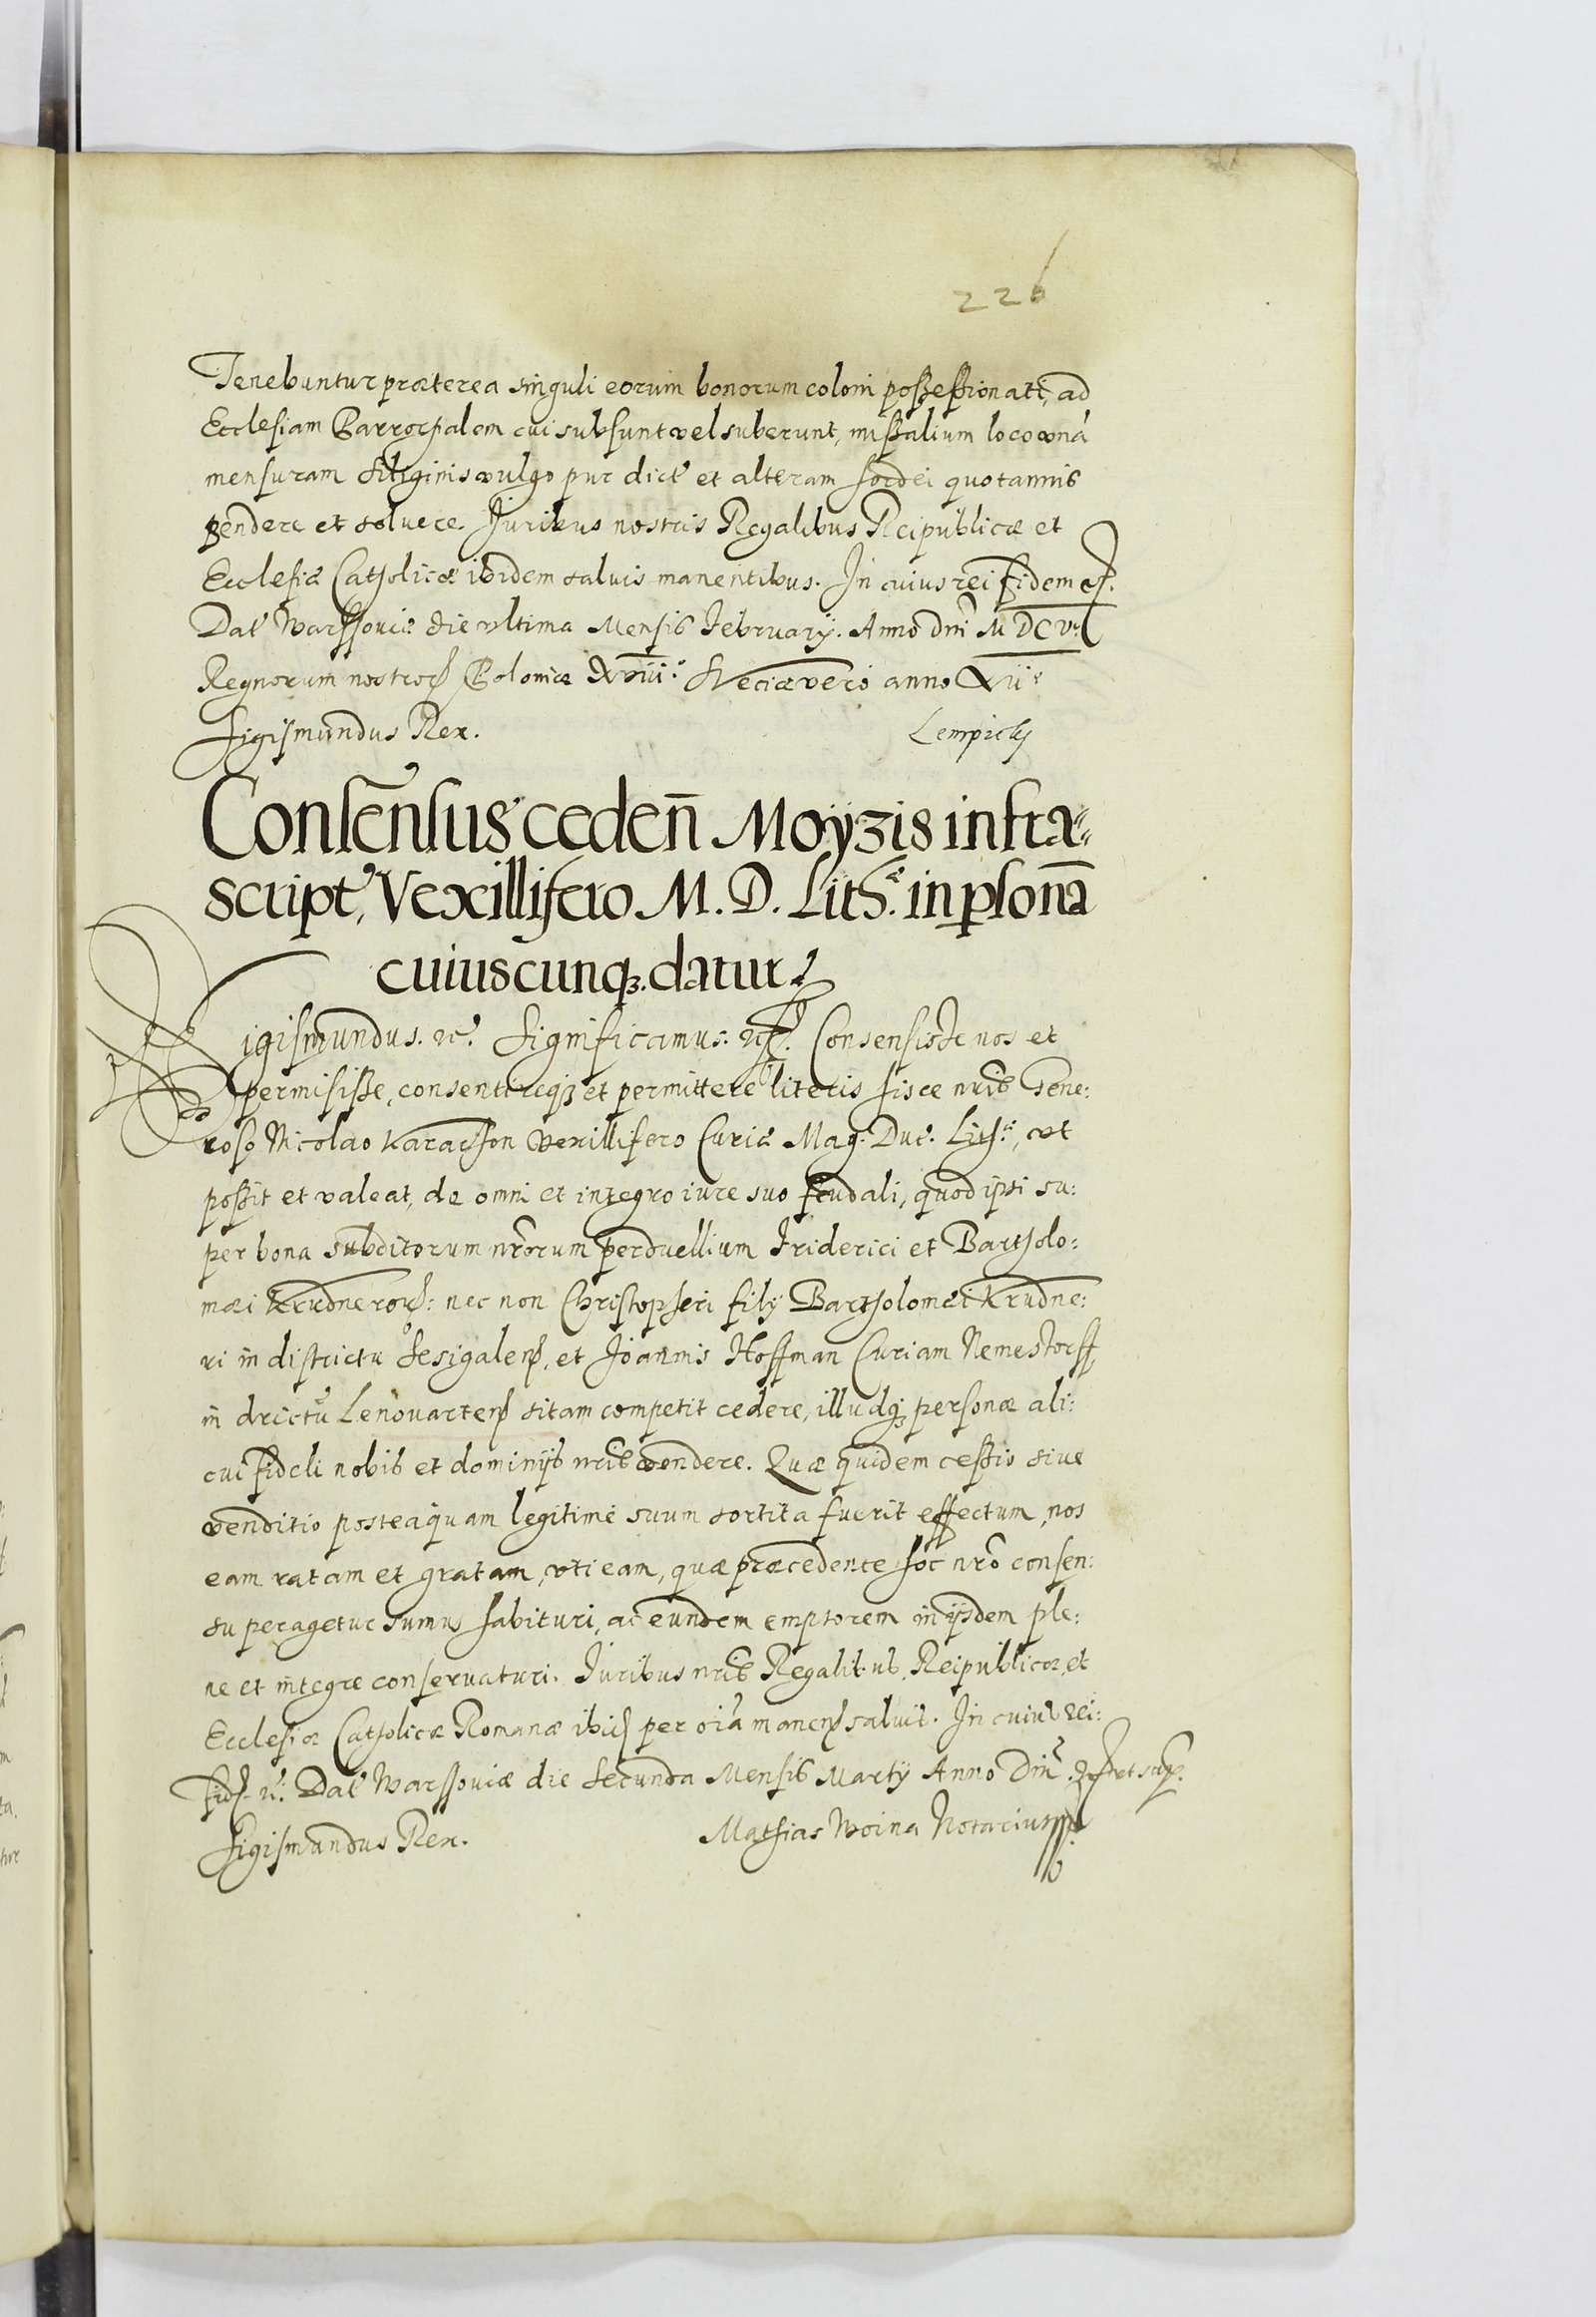 226
Tenebuntur præterea singuli eorum bonorum coloni possessionati, ad
Ecclesiam Parrochialem cui subsunt vel suberunt, missalium loco vnā
mensuram siliginis vulgo pur dict' et alteram hordei quotannis
pendere et soluere. Juribus nostris Regalibus Reipublicæ et
Ecclesiæ Catholicæ ibidem saluis manentibus. In cuius rei fidem etc.
Dat' Warssoviæ die vltima Mensis February. Anno dni M DC V°
Regnorum nostror. Poloniæ XVIII° Sveciæ vero anno XII°
Sigismundus Rex. Lempicky
Consensus ceden̄ Moyzis infra=
script', Vexillifero M. D. Lith. in psonā
cuiuscunq3. datur.
Sigismundus. etc. Significamus. etc. Consensisse nos et
permisisse, consentireq3 et permittere literis hisce nris Gene:
roso Nicolao Vexillifero Curiæ Mag. Duc. Lith., vt
possit et valeat, de omni et integro iure suo feudali, quod ipsi su:
per bona subditorum nrorum perduellium Friderici et Bartholo:
mæi Krudnerow: nec non Christopheri fily Bartholomæi Krudne:
ri in districtu Sesigalen, et Joannis Hoffman Curiam Nemestorff,
in drictu Lenovarten sitam competit cedere, illudq3 personæ ali:
cui fideli nobis et dominijs nris vendere. Quæ quidem cessio siue
venditio posteaquam legitime suum sortita fuerit effectum, nos
eam ratam et gratam, vti eam, quæ præcedente hoc nro consen:
su peragetur sumus habituri, ac eundem emptorem in ijsdem ple:
ne et integre conseruaturi. Juribus nris Regalibus, Reipublicæ, et
Ecclesiæ Catholicæ Romanæ ibid per oīa manen saluis. In cuius rei:
fid. etc. Dat' Warssoviæ die secunda Mensis Marty Anno Dni
Sigismundus Rex. Mathias Woina Notarius